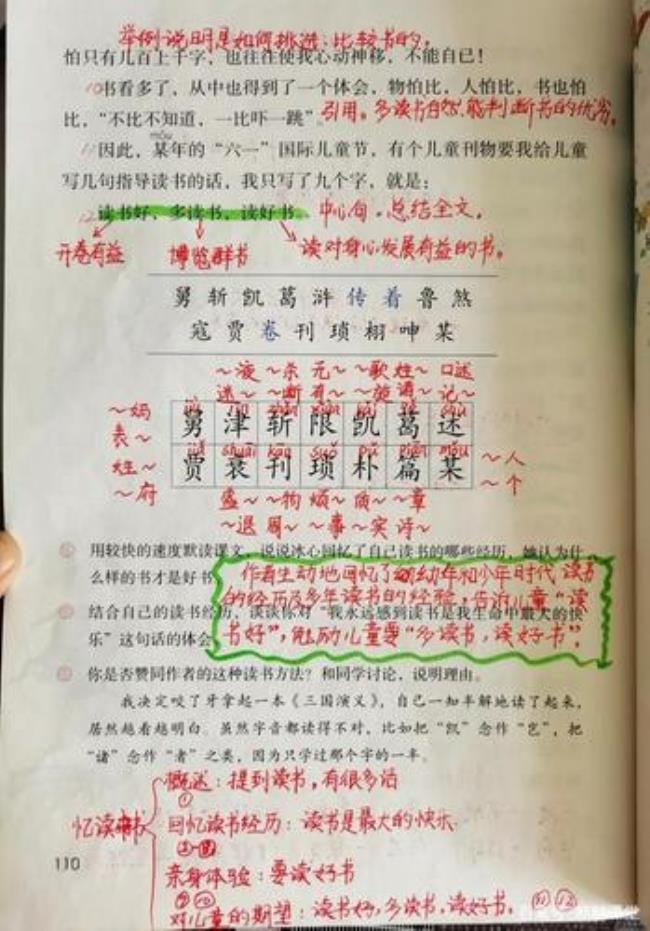 举例说明是如何挑选、比较书的。
怕只有几百上千字，也往往使我心动神移，不能自已！
⑩书看多了，从中也得到了一个体会，物怕比，人怕比，书也怕
比，“不比不知道，一比吓一跳”。引用。多读书自然能判断书的优劣。
mǒu
⑪因此，某年的“六一”国际儿童节，有个儿童刊物要我给儿童
写几句指导读书的话，我只写了九个字，就是：
⑫读书好、多读书、读好书。中心句。总结全文。
开卷有益 博览群书 读对身心发展有益的书。
舅 斩 凯 葛 浒 传 着 鲁 煞
寇 贾 卷 刊 琐 栩 呻 某
～液 ～杀 无～ ～歌 姓～ 口述
迷～ ～断 有～ ～旋 诸～ 记～
～妈
表～
舅 津 斩 限 凯 葛 述
jiǎ shuāi kān suǒ pǔ piān mǒu
贾 衰 刊 琐 朴 篇 某
姓～
～府
～人
～个
盛～ ～物 烦～ 质～ ～章
～退 周～ ～事 ～实 诗～
用较快的速度默读课文，说说冰心回忆了自己读书的哪些经历，她认为什
么样的书才是好书
作者生动地回忆了幼年和少年时代读书
的经历及多年读书的经验，告诉儿童“读
书好”，勉励儿童要“多读书，读好书”。
结合自己的读书经历，谈谈你对“我永远感到读书是我生命中最大的快
乐”这句话的体会
你是否赞同作者的这种读书方法？和同学讨论，说明理由。
我决定咬了牙拿起一本《三国演义》，自己一知半解地读了起来，
居然越看越明白。虽然字音都读得不对，比如把“凯”念作“岂”，把
“诸”念作“者”之类，因为只学过那个字的一半。
忆读书
概述：提到读书，有很多话
①
回忆读书经历：读书是最大的快乐
亲身体验：要读好书
对儿童的期望：读书好，多读书，读好书。⑪⑫
110